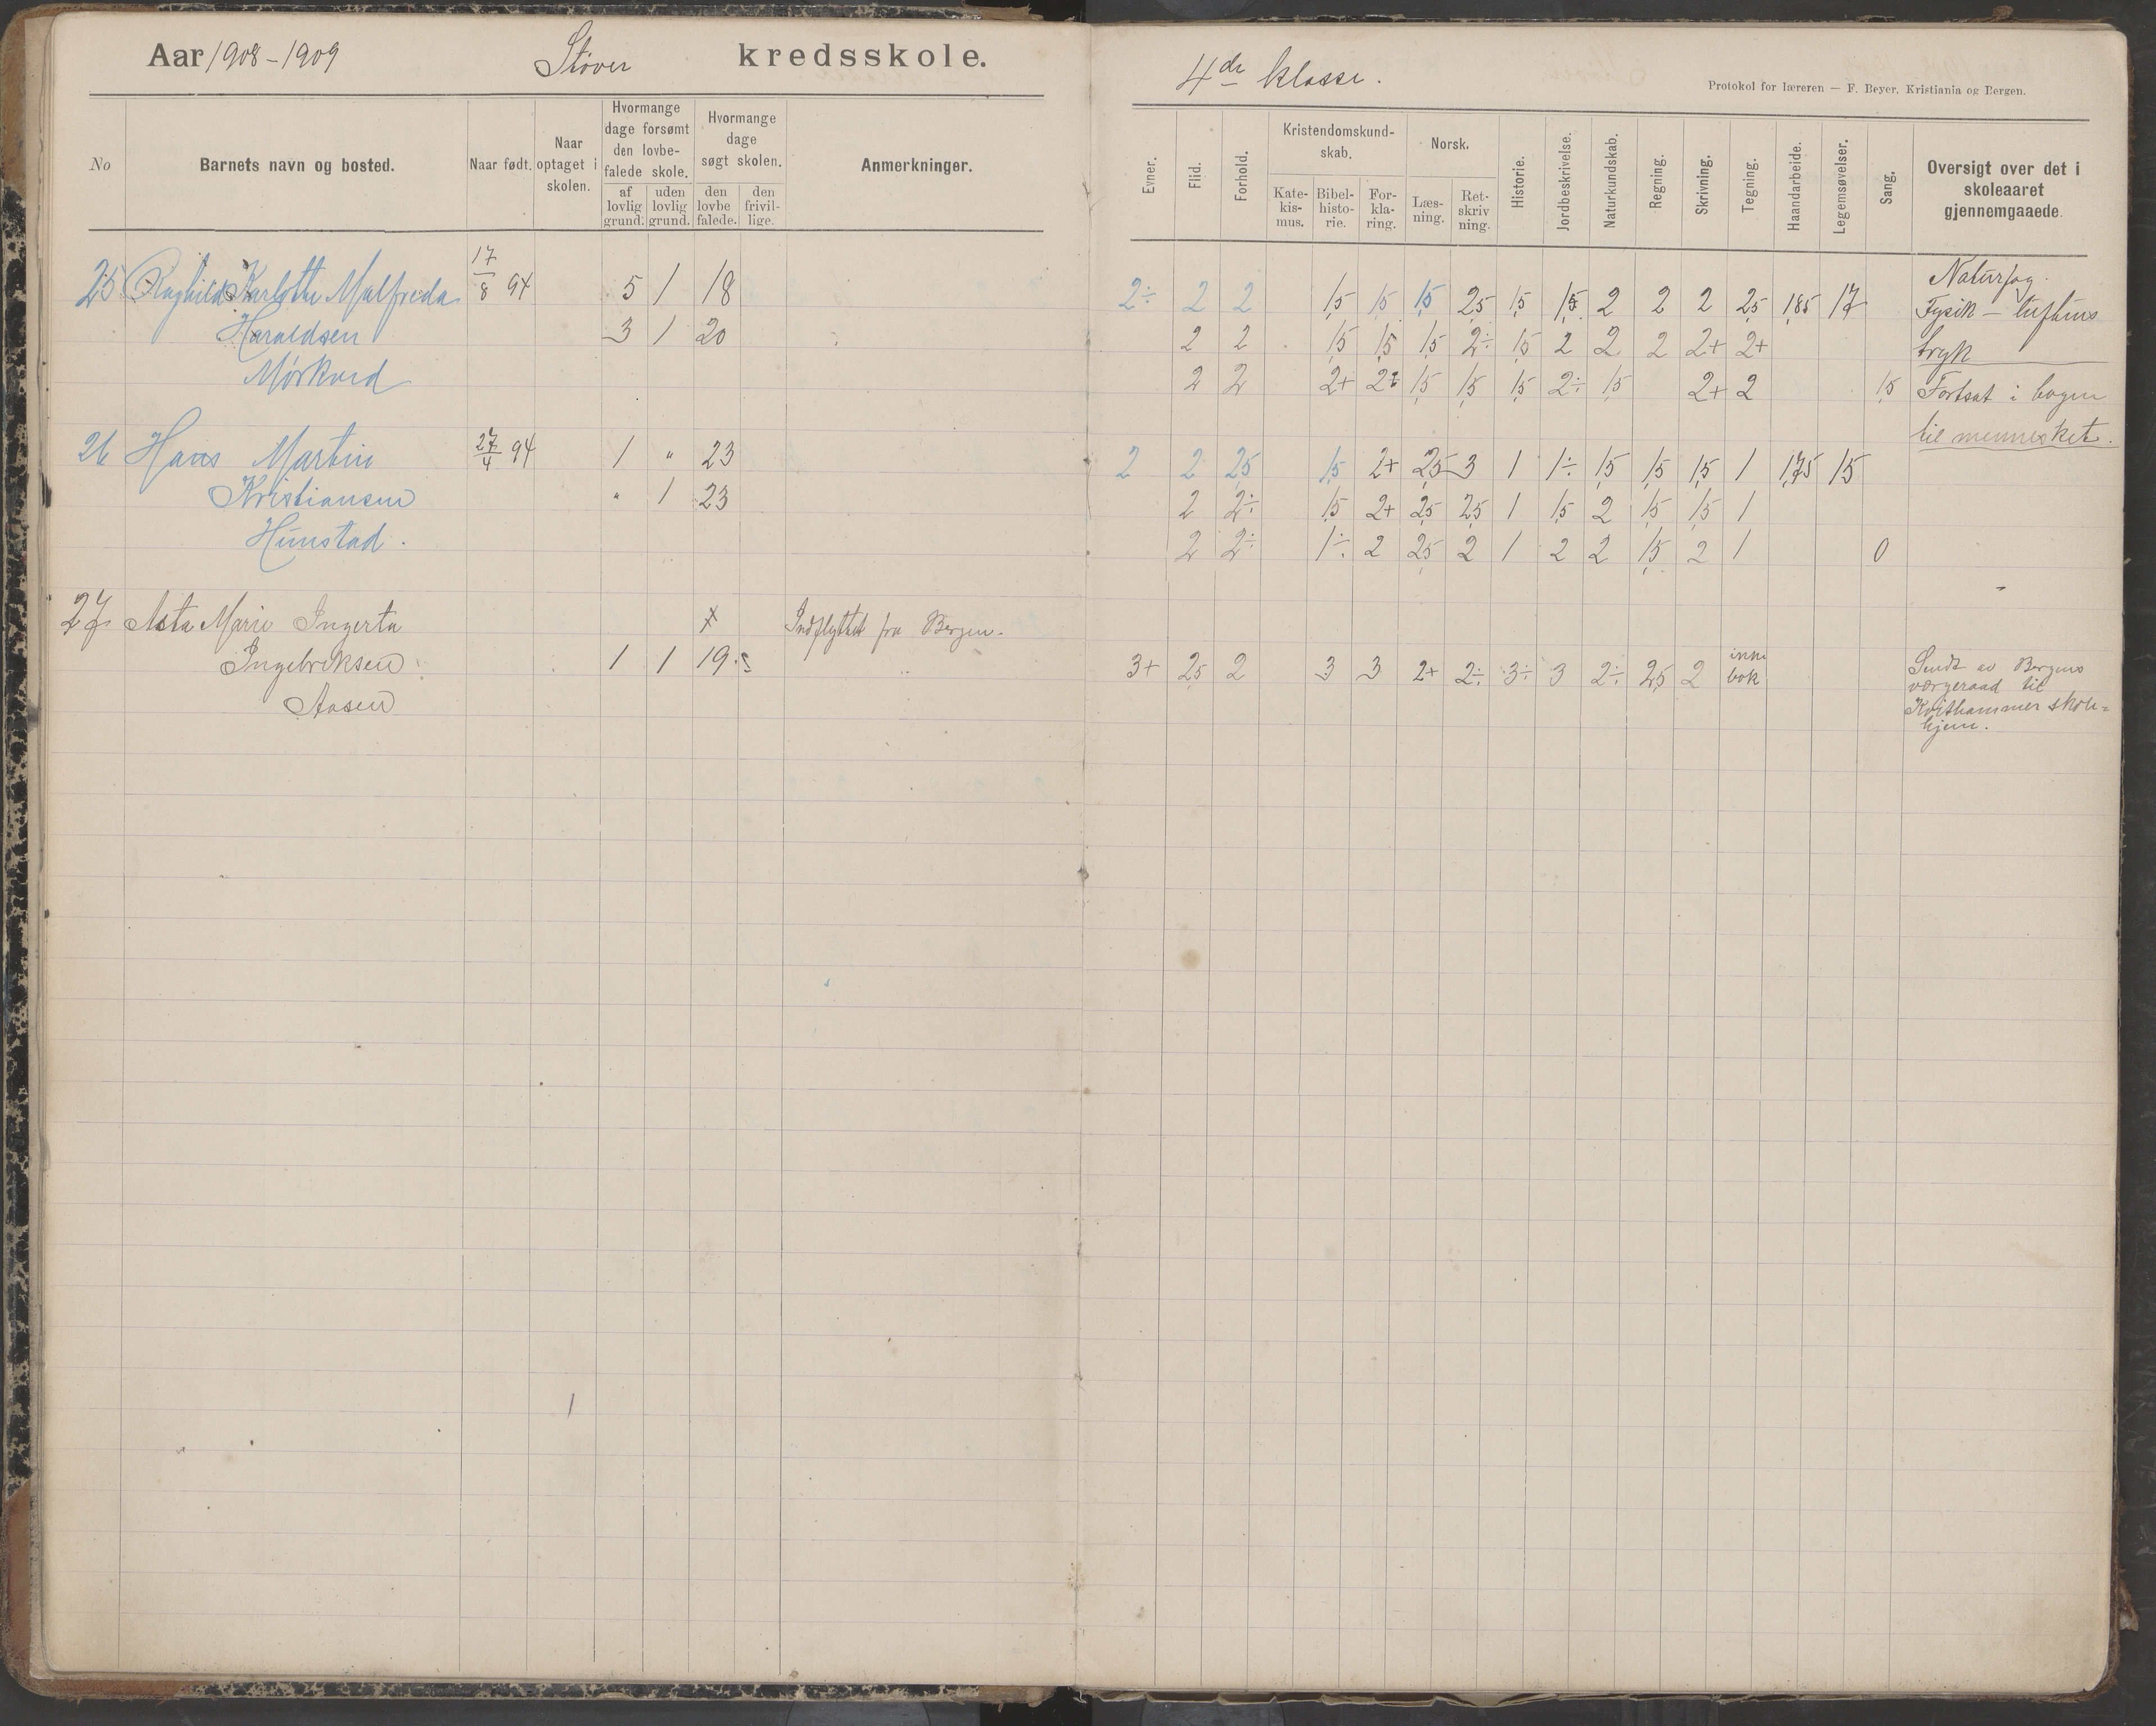 Aar 1908-1909 Støver kredsskole.
4de klasse.
Protokol for læreren — F. Beyer, Kristiania og Bergen.
No
Barnets navn og bosted.
Naar født.
Naar optaget i skolen.
Hvormange dage forsømt den lovbefalede skole.
af lovlig grund.
uden lovlig grund.
Hvormange dage søgt skolen.
den lovbefalede.
den frivillige.
Anmerkninger.
Evner.
Flid.
Forhold.
Kristendomskundskab.
Katekismus.
Bibelhistorie.
Forklaring.
Norsk.
Læsning.
Retskrivning.
Historie.
Jordbeskrivelse.
Naturkundskab.
Regning.
Skrivning.
Tegning.
Haandarbeide.
Legemsøvelser.
Sang.
Oversigt over det i skoleaaret gjennemgaaede.
25 Raghild Karlotte Malfreda 17/8 94 5 1 18 2÷ 2 2 1,5 1,5 1,5 2,5 1,5 1,5 2 2 2 2,5 1,85 1,7
Haraldsen 3 1 20 2 2 1,5 1,5 1,5 2÷ 1,5 2 2 2 2+ 2+
Mørkved 2 2 2+ 2+ 1,5 1,5 1,5 2÷ 1,5 2+ 2 1,5
Naturfag.
Fysik — luftens
tryk
Fortsat i bogen
til mennesket.
26 Hans Martin 27/4 94 1 " 23 2 2 2,5 1,5 2+ 2,5 3 1 1÷ 1,5 1,5 1,5 1 1,75 1,5
Kristiansen " 1 23 2 2÷ 1,5 2+ 2,5 2,5 1 1,5 2 1,5 1,5 1
Hunstad. 2 2÷ 1÷ 2 2,5 2 1 2 2 1,5 2 1 0
27 Asta Marie Ingerta x Indflyttet fra Bergen.
Ingebriksen 1 1 19 3+ 2,5 2 3 3 2+ 2÷ 3÷ 3 2÷ 2,5 2 ikke bok
Aasen
Sendt av Bergens
værgeraad til
hjem.